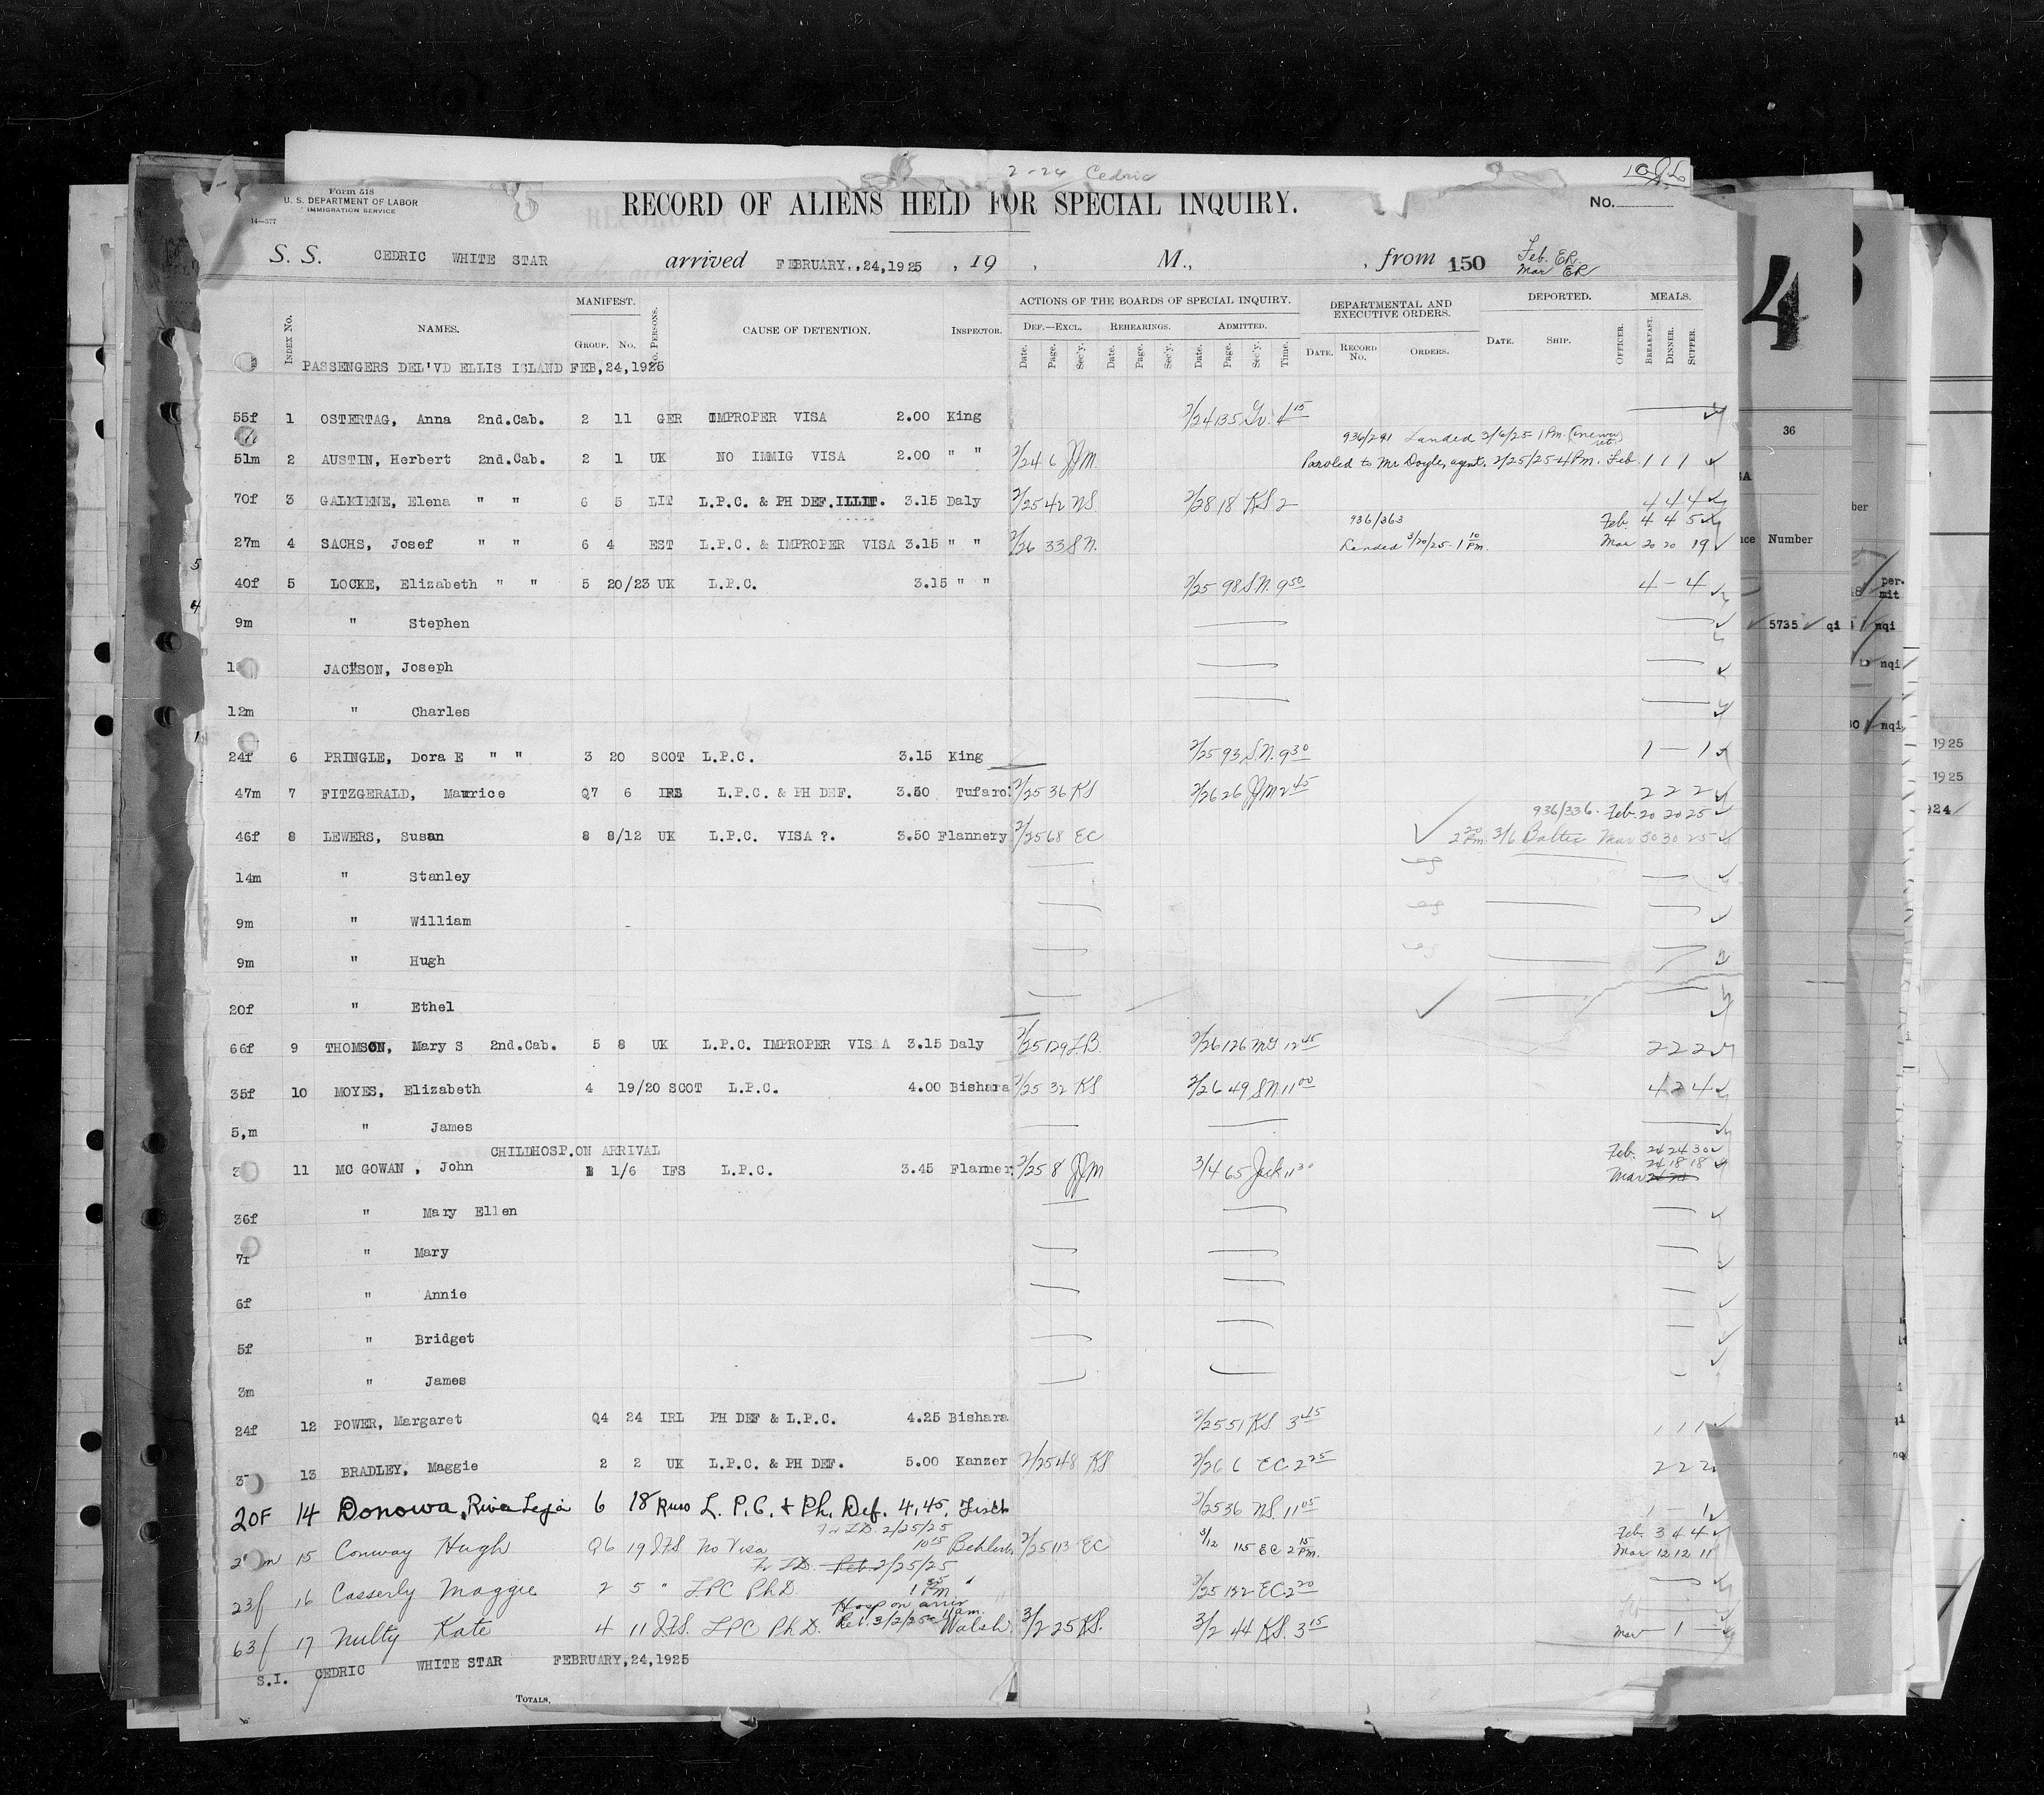 2-24 Cedric
Form 518
U. S. DEPARTMENT OF LABOR
IMMIGRATION SERVICE
14—577
RECORD OF ALIENS HELD FOR SPECIAL INQUIRY.
No.
S. S. CEDRIC WHITE STAR arrived FEBRUARY.,24,1925 , 19 , M., , from 150 Feb. ER. Mar ER
INDEX No. NAMES. MANIFEST. GROUP. No. No. PERSONS. CAUSE OF DETENTION. INSPECTOR. ACTIONS OF THE BOARDS OF SPECIAL INQUIRY. DEF.—EXCL. REHEARINGS. ADMITTED. DEPARTMENTAL AND EXECUTIVE ORDERS. DEPORTED. MEALS.
Date. Page. Sec'y. Date. Page. Sec'y. Date. Page. Sec'y. Time. DATE. RECORD No. ORDERS. DATE. SHIP. OFFICER. BREAKFAST. DINNER. SUPPER.
PASSENGERS DEL'VD ELLIS ISLAND FEB,24,1925
55f 1 OSTERTAG, Anna 2nd.Cab. 2 11 GER IMPROPER VISA 2.00 King 2/24 135 Gv. 4 15
936/291 Landed 3/6/25 1 PM.
51m 2 AUSTIN, Herbert 2nd.Cab. 2 1 UK NO IMMIG VISA 2.00 " " 2/24 6 JJM. Paroled to Mr Doyle, agent. 2/25/25-4PM. Feb. 1 1 1
70f 3 GALKIENE, Elena " " 6 5 LIT L.P.C. & PH DEF.ILLIT. 3.15 Daly 2/25 42 NS 2/28 18 KS 2 4 4 4
936/363 Feb. 4 4 5
27m 4 SACHS, Josef " " 6 4 EST L.P.C. & IMPROPER VISA 3.15 " " 2/26 33 SN. Landed 3/20/25-1 10 Pm. Mar 20 20 19
40f 5 LOCKE, Elizabeth " " 5 20/23 UK L.P.C. 3.15 " " 2/25 98 SN. 9 50 4 – 4
9m " Stephen
JACKSON, Joseph
12m " Charles
24f 6 PRINGLE, Dora E " " 3 20 SCOT L.P.C. 3.15 King 2/25 93 S.N. 9 30 1 – 1
47m 7 FITZGERALD, Maurice Q7 6 IRS L.P.C. & PH DEF. 3.50 Tufaro. 2/25 36 KS 2/26 26 JJM 2 45 2 2 2
936/336. Feb. 20 20 25
46f 8 LEWERS, Susan 8 8/12 UK L.P.C. VISA ?. 3.50 Flannery 2/25 68 EC 2 20 Pm. 3/6 Baltic Mar 30 30 25
14m " Stanley
9m " William
9m " Hugh
20f " Ethel
66f 9 THOMSON, Mary S 2nd.Cab. 5 8 UK L.P.C. IMPROPER VISA 3.15 Daly 2/25 129 LB. 2/26 126 MG 12 45 2 2 2
35f 10 MOYES, Elizabeth 4 19/20 SCOT L.P.C. 4.00 Bishara 2/25 32 KS 2/26 49 SN. 11 00 4 2 4
5,m " James
CHILDHOSP.ON ARRIVAL Feb. 24 24 30
11 MC GOWAN , John 1 1/6 IFS L.P.C. 3.45 Flanner 2/25 8 JJM 3/4 65 Jack 11 30 24 18 18 Mar
36f " Mary Ellen
7f " Mary
6f " Annie
5f " Bridget
3m " James
24f 12 POWER, Margaret Q4 24 IRL PH DEF & L.P.C. 4.25 Bishara 2/25 51 KS. 3 45 1 1 1
13 BRADLEY, Maggie 2 2 UK L.P.C. & PH DEF. 5.00 Kanzer 2/25 48 KS 2/26 6 EC 2 25 2 2 2
20F 14 Donowa, Riva Leja 6 18 Russ L. P. C. & Ph. Def. 4.45. 2/25 36 NS. 11 05 1 – 1
Fr T.D. 2/25/25 Feb. 3 4 4
15 Conway Hugh Q6 19 IFS No Visa 10 15 2/25 113 EC 3/12 115 EC 2 15 Pm. Mar 12 12 11
Fr T.D. Feb. 2/25/25
23f 16 Casserly Maggie 2 5 " LPC Ph.D. 1 PM " 2/25 132 EC. 2 20
Hosp on arriv
Rel. 3/2/25 11am.
63f 17 Nulty Kate 4 11 IFS. LPC Ph.D. Walsh. 3/2 25 KS. 3/2 44 KS. 3 15 Mar – 1 –
S.I. CEDRIC WHITE STAR FEBRUARY,24,1925
TOTALS.
4
36
Number
5735 qi
per-
mit
nqi
nqi
nqi
1925
1925
924